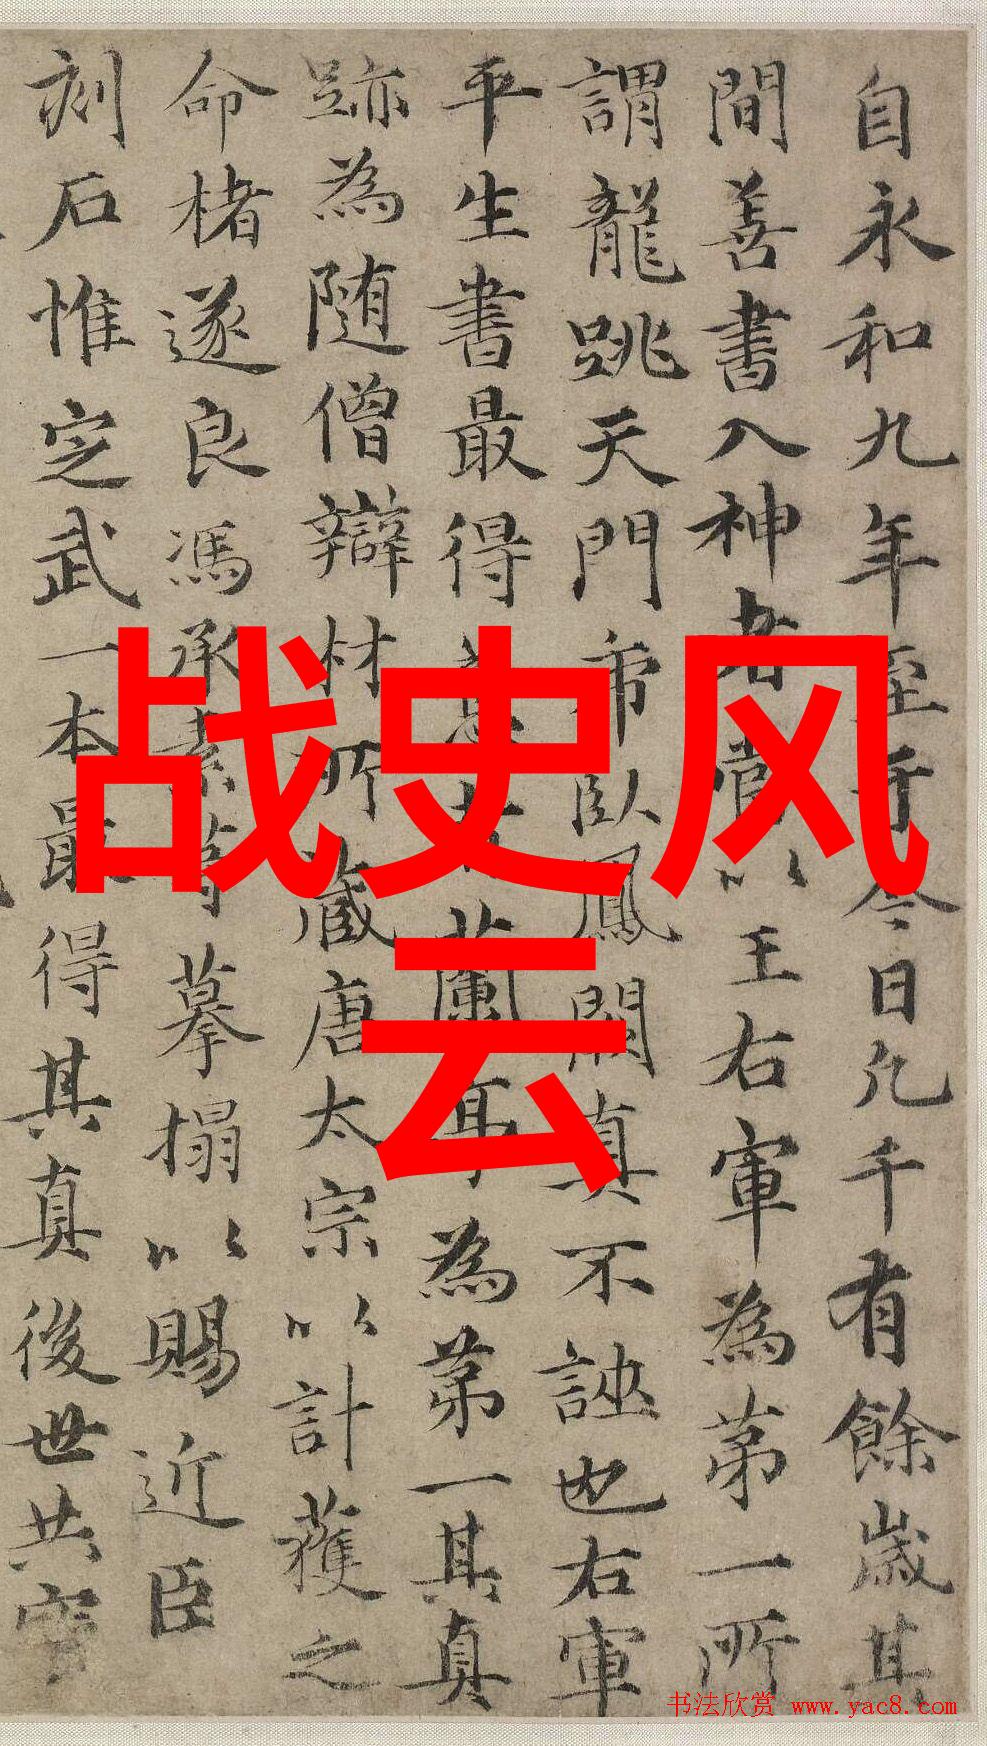 自永和九年至于今日凡千有餘歲其
間善書入神者當以王右軍為第一所
謂龍跳天門臥鳳闕真不誣也右軍
平生書最得蘭為第一其真
跡為隨僧辯材所藏唐太宗以計獲之
命楮遂良馮承素等摹搨以賜近臣
刻石惟定武一本最得其真後世共
战史风
云
书法欣赏 www.yac8.com